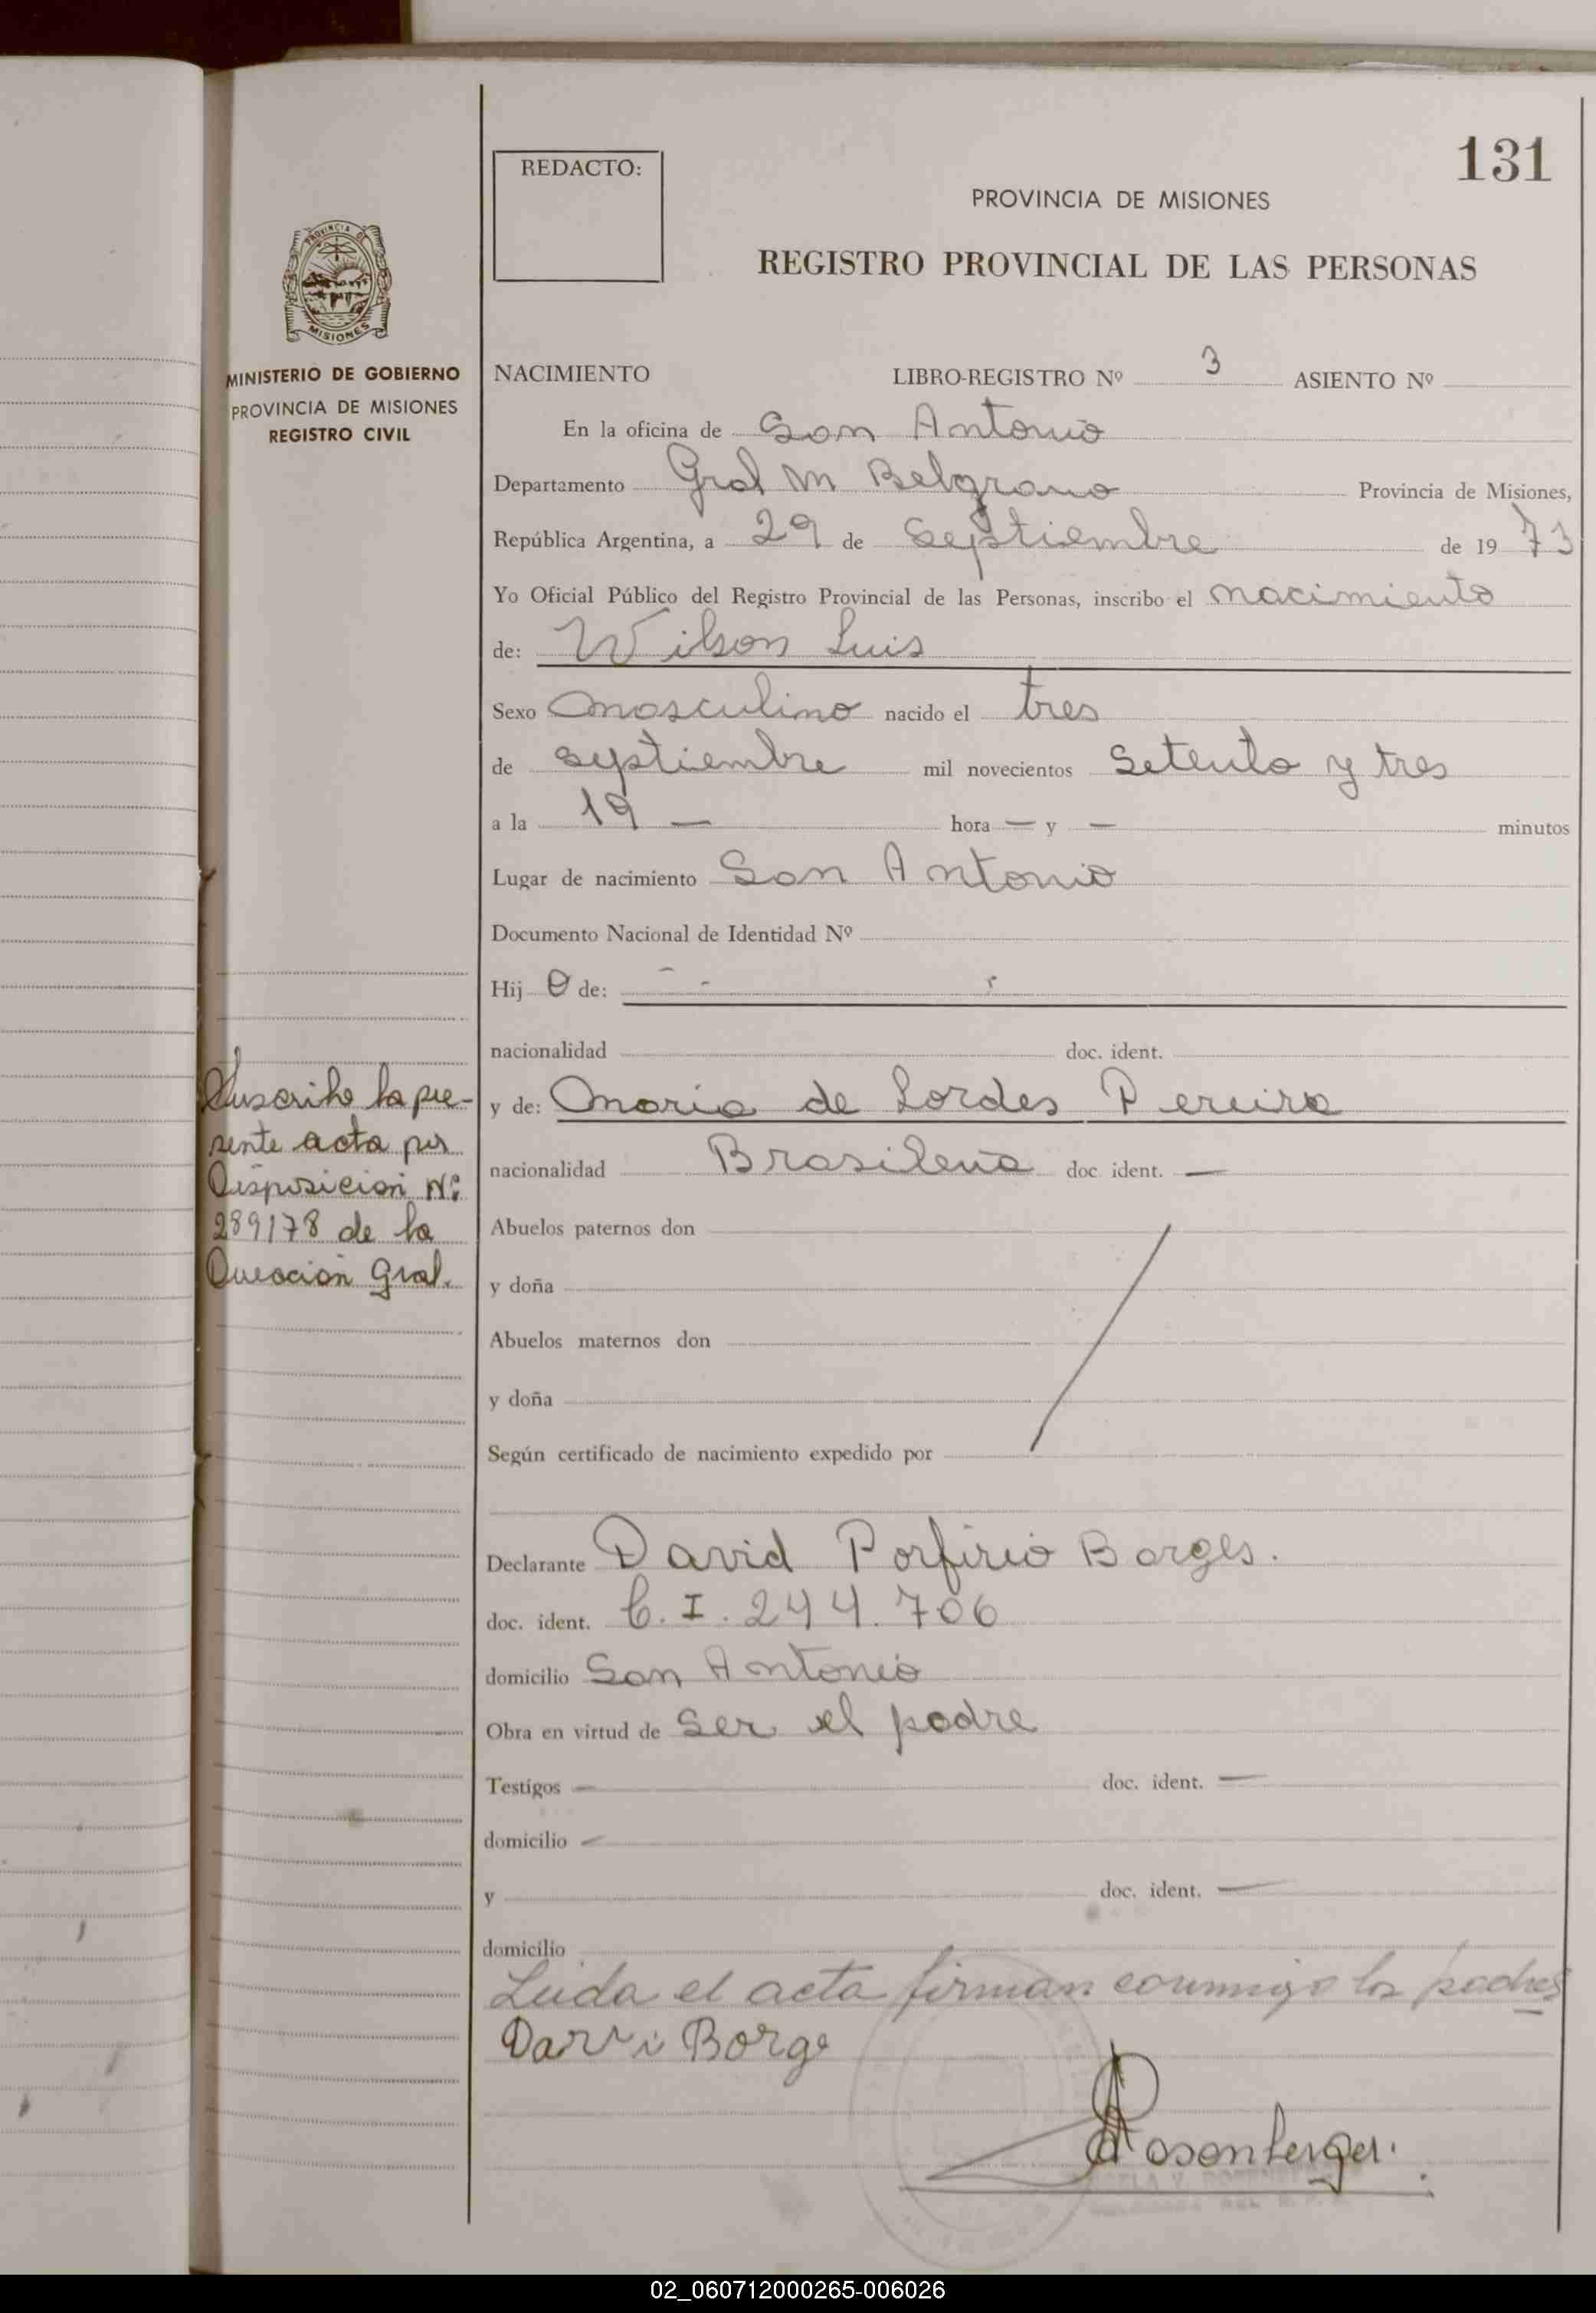 131
REDACTO:
PROVINCIA DE MISIONES
REGISTRO PROVINCIAL DE LAS PERSONAS
PROVINCIA DE
MISIONES
MINISTERIO DE GOBIERNO
PROVINCIA DE MISIONES
REGISTRO CIVIL
NACIMIENTO LIBRO-REGISTRO Nº 3 ASIENTO Nº
En la oficina de San Antonio
Departamento Gral M Belgrano Provincia de Misiones,
República Argentina, a 29 de Septiembre de 19 73
Yo Oficial Público del Registro Provincial de las Personas, inscribo el nacimiento
de: Wilson Luis
Sexo masculino nacido el tres
de septiembre mil novecientos Setenta y tres
a la 19 — hora — y — minutos
Lugar de nacimiento San Antonio
Documento Nacional de Identidad Nº
Hij o de:
nacionalidad doc. ident.
y de: Maria de Lordes Pereira
nacionalidad Brasileña doc. ident. —
Abuelos paternos don
y doña
Abuelos maternos don
y doña
Según certificado de nacimiento expedido por
Suscribo la pre-
sente acta por
Disposición Nº
289178 de la
Dirección Gral.
Declarante David Porfirio Borges.
doc. ident. C.I. 244.706
domicilio San Antonio
Obra en virtud de Ser el padre
Testigos — doc. ident. —
domicilio —
y doc. ident. —
domicilio
Leida el acta firman conmigo los padres
Darvi Borge
Rosenberger.
02_060712000265-006026